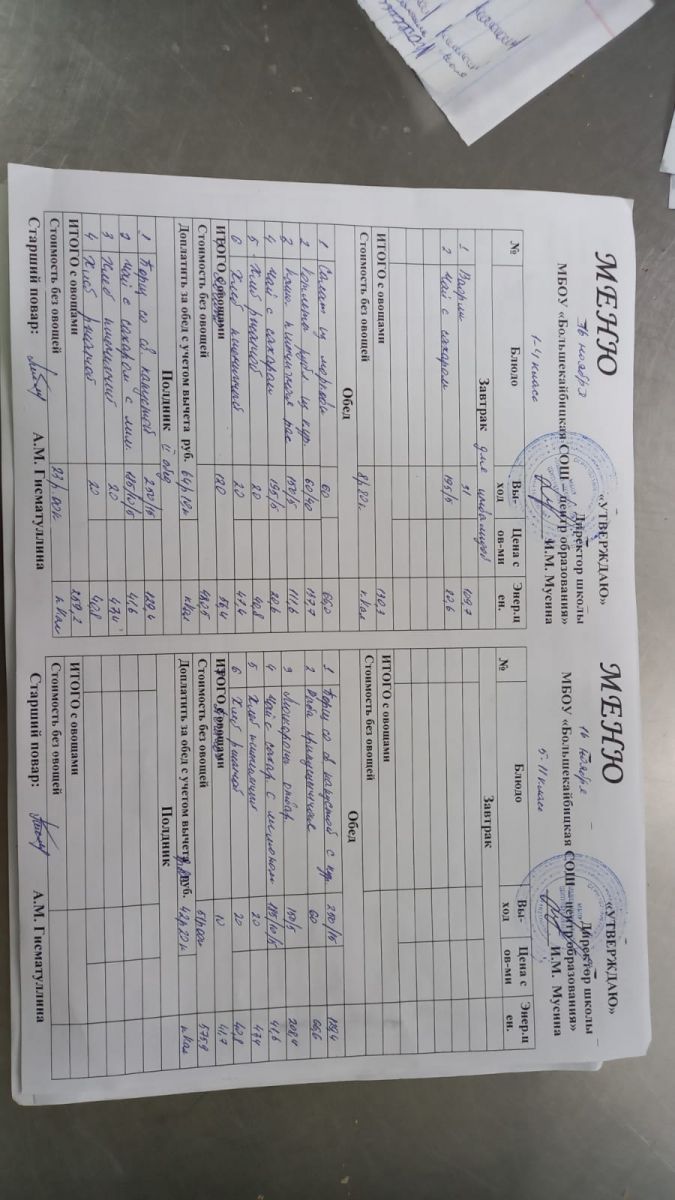 МЕНЮ
«УТВЕРЖДАЮ»
Директор школы
16 ноября
МБОУ «Большекайбицкая СОШ – центр образования»
1-4 класс
И.М. Мусина
№ Блюдо Вы-ход Цена с ов-ми Энер.ц ен.
Завтрак для
1 Вафли 31 109,7
2 Чай с сахаром 195/5 20,6
ИТОГО с овощами 130,3
Стоимость без овощей 8р 80к кКал
Обед
1 Салат из моркови 60
2 60/40 157,7
3 Каша пшеничная рас 150/5 111,6
4 Чай с сахаром 195/5 20,6
5 Хлеб ржаной 20 40,8
6 Хлеб пшеничный 20 47,4
ИТОГО с овощами
Стоимость без овощей
Доплатить за обед с учетом вычета руб. 64р кКал
Полдник
1 Борщ со св капустой 250/15 129,4
2 Чай с сахаром с лим. 185/10/5 41,6
3 Хлеб пшеничный 20 47,4
4 Хлеб ржаной 20 40,8
ИТОГО с овощами 259,2
Стоимость без овощей 23р 00к кКал
Старший повар: А.М. Гисматуллина
МЕНЮ
«УТВЕРЖДАЮ»
Директор школы
16 ноября
МБОУ «Большекайбицкая СОШ – центр образования»
5-11 класс
И.М. Мусина
№ Блюдо Вы-ход Цена с ов-ми Энер.ц ен.
Завтрак
ИТОГО с овощами
Стоимость без овощей
Обед
1 Борщ со св капустой с кур 250/15
2 Рыба 60 66,6
3 Макароны отвар 150/5 208,4
4 Чай с сахар с лимоном 185/10/5 41,6
5 Хлеб пшеничный 20 47,4
6 Хлеб ржаной 20 40,8
ИТОГО с овощами 10 41,7
Стоимость без овощей 51р 00к 575,9
Доплатить за обед с учетом вычета руб. 42р 20к кКал
Полдник
ИТОГО с овощами
Стоимость без овощей
Старший повар: А.М. Гисматуллина